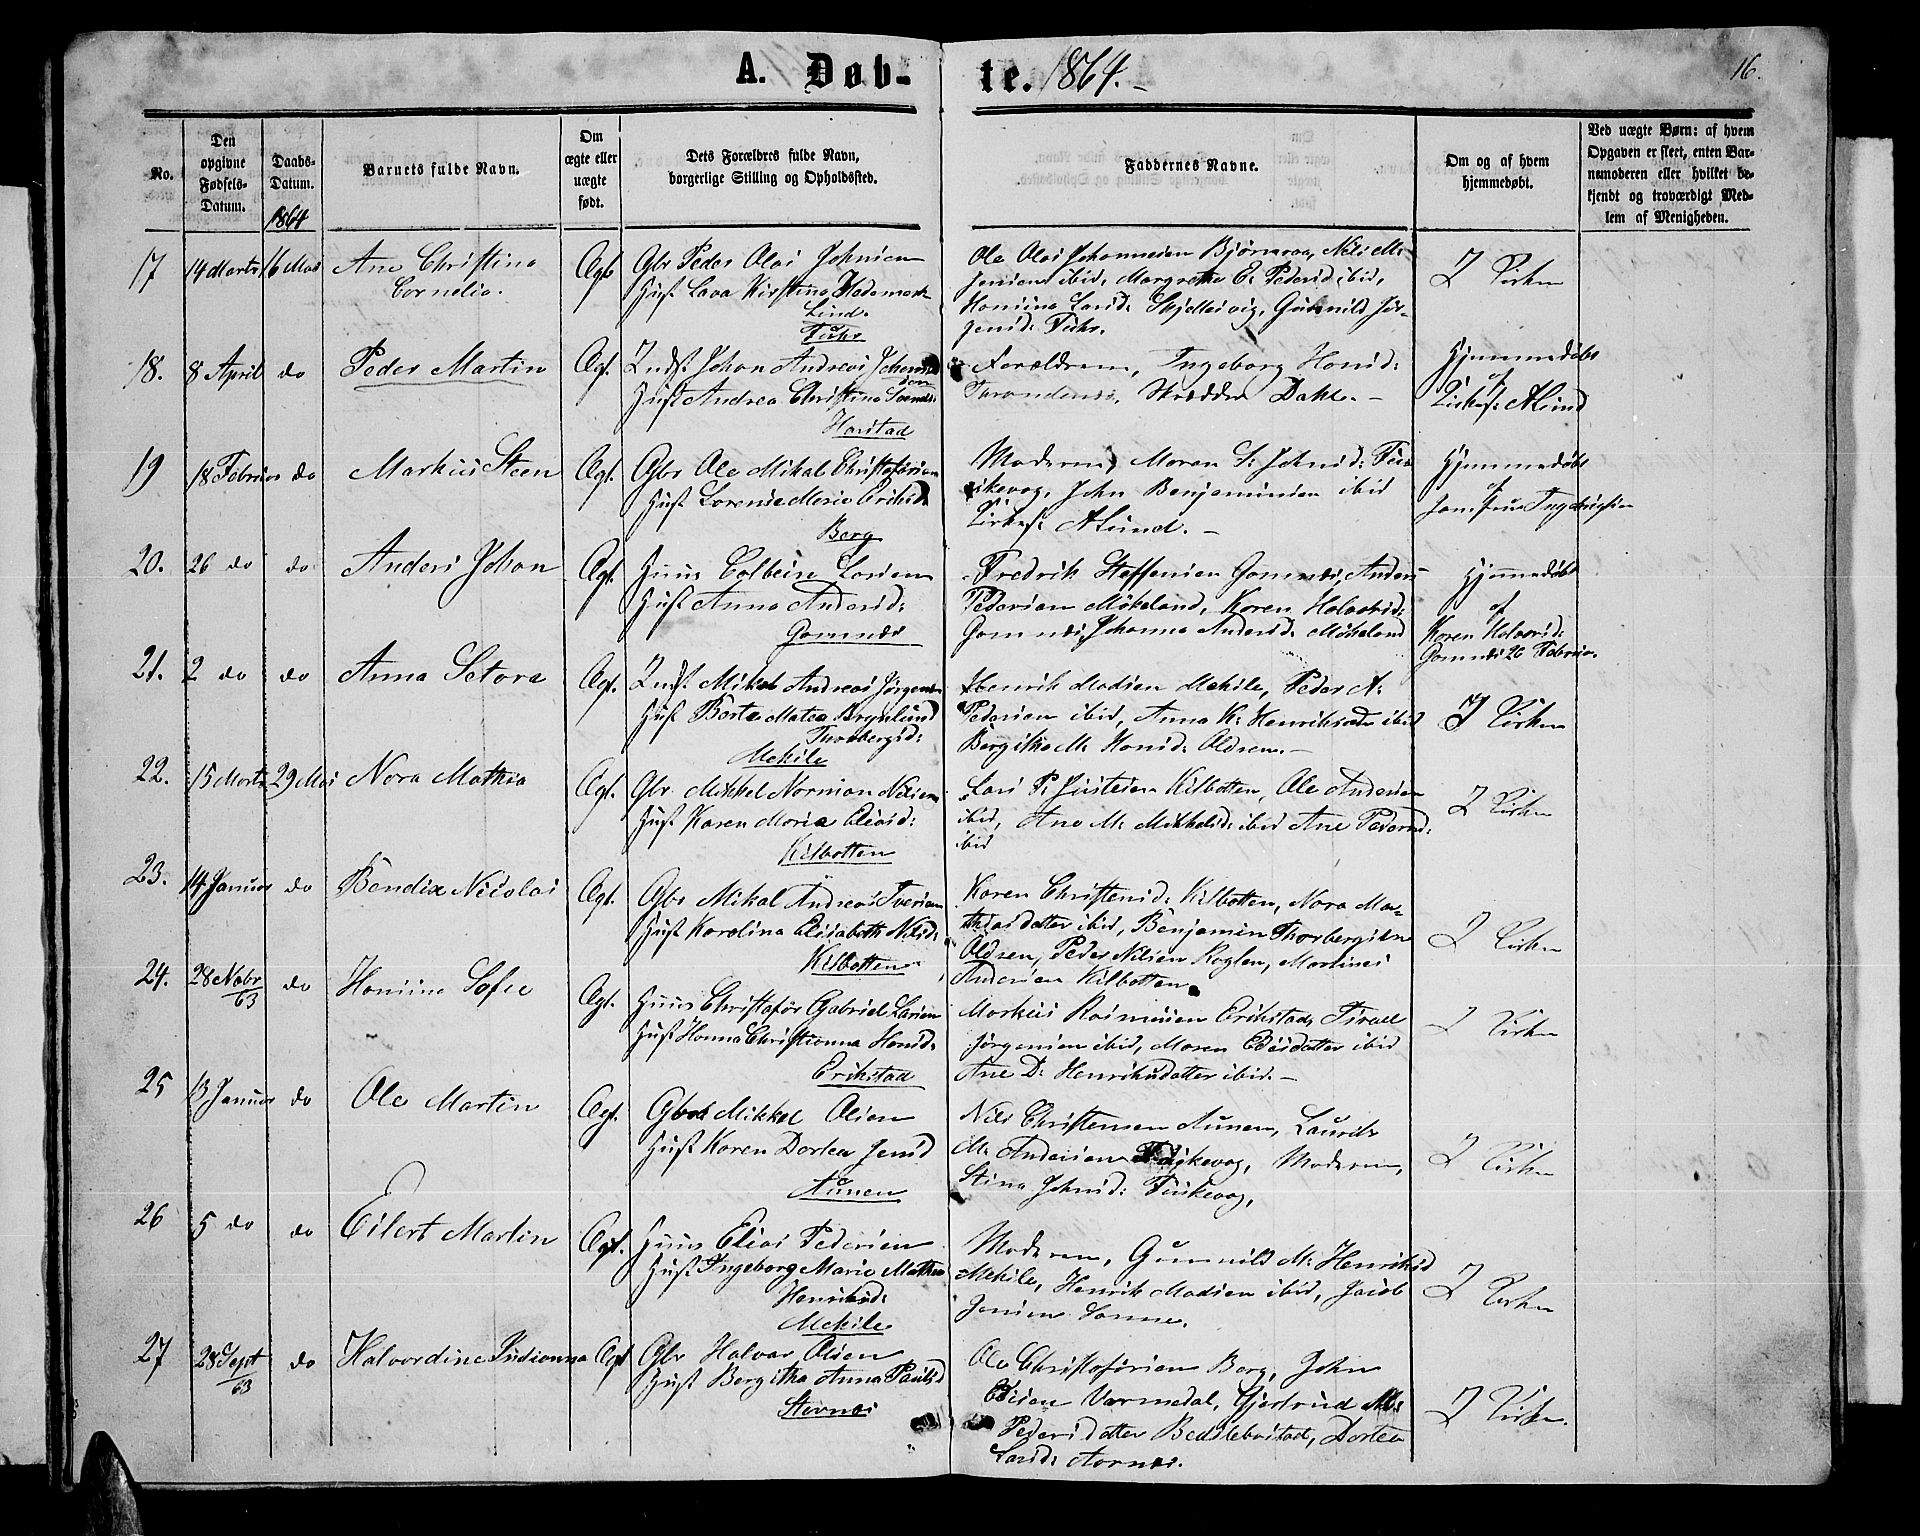 A. Døb-
te. 1864.-
16.
No.
Den
opgivne
Fødsels-
Datum.
Daabs-
Datum.
1864
Barnets fulde Navn.
Om
ægte eller
uægte
født.
Dets Forældres fulde Navn,
borgerlige Stilling og Opholdssted.
Faddernes Navne.
Om og af hvem
hjemmedøbt.
Ved uægte Børn: af hvem
Opgaven er skeet, enten Bar-
nemoderen eller hvilket be-
kjendt og troværdigt Med-
lem af Menigheden.
17
14 Marts
16 Mai
Ane Christina
Cornelia.
Ægt
Gbr Peder Olai Johnsen
Hust Lava Kirstina Hademark
Lind.
Ole Olai Johannesen Bjørnraa, Nils M:
Jensen ibid, Margrethe E: Pedersd ibid,
Hansina Larsd: Skjellesvig, Gunnild Jør-
gensd:
I Kirken
18.
8 April
do
Peder Martin
Ægt.
Indst Johan Andreas Johans
sen
Hust Andrea Christina Svends:
Harstad
Forældrene, Ingeborg Hansd:
Trondenes, Skrædder Dahl. -
Hjemmedøbt
af
Kirkes: Aslund
19
18 Februar
do
Markus Steen
Ægt.
Gbr Ole Mikal Christofersen
Hust Lorense Marie Eriksd
Berg
Moderen, Maren S: Johnsd: Fus
kevog, John Benjaminsen ibid
Kirkes: Aslund. -
Hjemmedøbt
af
Jomfrue Ingebrigtsen
20.
26 do
do
Anders Johan
Ægt.
Huus Colbein Larsen
Hust Anna Andersd:
Gomnæs
Fredrik Steffensen Gomnæs, Anders
Pedersen Møkeland, Karen Halvorsd:
Gomnæs, Johanna Andersd: Møkeland
Hjemmedøbt
af
Karen Halvorsd:
Gomnæs 26 Februar.
21.
2 do
do
Anna Setora
Ægt.
Indst Mikal Andreas Jørgensen
Hust Berte Matea Brynlund
Thorbergsd:
Mekile
Henrik Madsen Mekile, Peder A:
Pedersen ibid, Anna K: Henriksdt ibid
Bergitha M: Hansd: Aldsen. -
I Kirken
22.
15 Marts
29 Mai
Nora Mathea
Ægt.
Gbr. Mikkel Norman Nilsen
Hust Karen Maria Eliasd:
Kilbotten
Lars P: Kilbotten, Ole Andersen
ibid, Ane M: Mikkelsd: ibid Ane Pedersd:
ibid
I Kirken
23.
14 Januar
do
Bendix Nicolai
Ægt.
Gbr Mikal Andreas Iversen
Hust Karolina Elisabeth Nilsd:
Kilbotten
Karen Christensd: Kilbotten, Nora Ma-
thiasdatter ibid, Benjamin Thorbergsen
Aldsen, Peder Nilsen Roglen, Martines
Andersen Kilbotten
I Kirken
24.
28 Nobr
63
do
Hansina Sofie
Ægt.
Huus Christofer Gabriel Larsen
Hust Hanna Christianna Hansd:
Erikstad
Markus Rasmusen Erikstad, Israel
Jørgensen ibid, Maren Edisdatter ibid
Ane D: Henriksdatter ibid. -
I Kirken
25
13 Januar
do
Ole Martin
Ægt.
Gbr Mikkel Olsen
Hust Karen Dortea Jensd
Aunen
Nils Christensen Aunen, Laurits
M: Andersen Fuskevog, Moderen,
Stina Johnsd: Fuskevog,
I Kirken
26
5 do
do
Eilert Martin
Ægt.
Huus Elias Pedersen
Hust Ingeborg Marie Mathea
Henriksd:
Mekile
Moderen, Gunnild M: Henriksd
Mekile, Henrik Madsen ibid, Jacob
Jensen Sanne.
I Kirken
27
28 Sept
63
do
Halvordine Susianna
Ægt
Gbr Halvor Olsen
Hust Bergitha Anna Paulsd
Stornæs
Ole Christofersen Berg, John
Edisen Varmedal, Gjertrud M:
Pedersdatter Bessebostad, Dortea
Larsd: Aarnæs.
I Kirken.